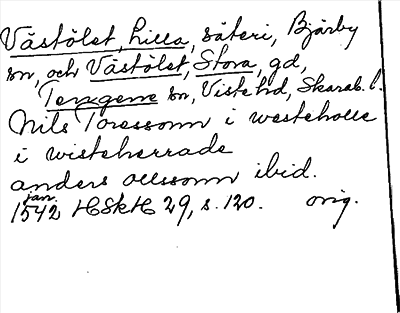 Västölet, Lilla, säteri, Bjärby
sn, och Västölet, Stora, gd,
Tengene sn, Viste hd, Skarab. l.
Nils Toressonn i westeholle
i wisteherrade
anders ollssonn ibid.
jan.
1542 HSkH 29, s. 120. orig.